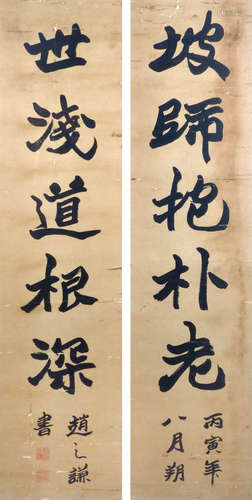 坡師抱朴老
丙寅年
八月朔
世淺道根深
趙之謙
書